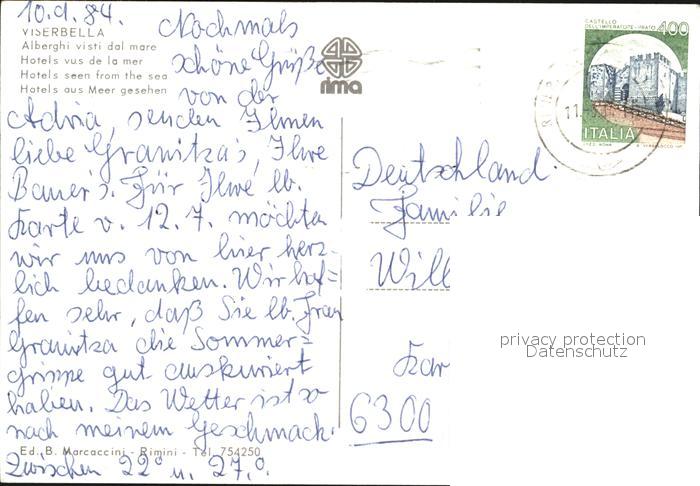 10.9.84. Nochmals
VISERBELLA
Alberghi visti dal mare
Hotels vus de la mer
Hotels seen from the sea
Hotels aus Meer gesehen
schöne Grüße
von der
Adria, senden Ihnen
liebe Granitza's, Ihre
Bauer's. Für Ihre lb.
Karte v. 12.7. möchten
wir uns von hier herz-
lich bedanken. Wir hof=
fen sehr, daß Sie lb. Frau
Granitza die Sommer=
grippe gut auskuriert
haben. Das Wetter ist so
nach meinem Geschmack.
Ed. B. Marcaccini - Rimini - Tel. 754250
Zwischen 22° u. 27.°
rima
CASTELLO
DELL'IMPERATORE - PRATO 400
ITALIA
Deutschland.
Familie
6300
privacy protection
Datenschutz